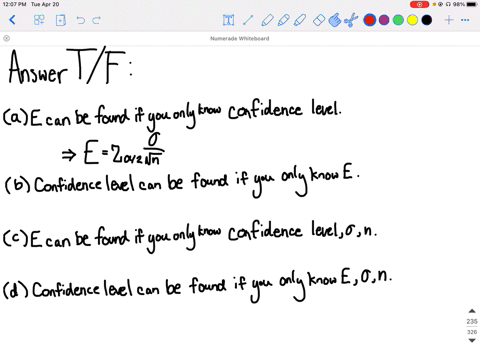 12:07 PM Tue Apr 20
98%
Numerade Whiteboard
Answer T/F:
(a) E can be found if you only know confidence level.
⇒ E = Z_{α/2} σ/√n
(b) Confidence level can be found if you only know E.
(c) E can be found if you only know confidence level, σ, n.
(d) Confidence level can be found if you only know E, σ, n.
235
326